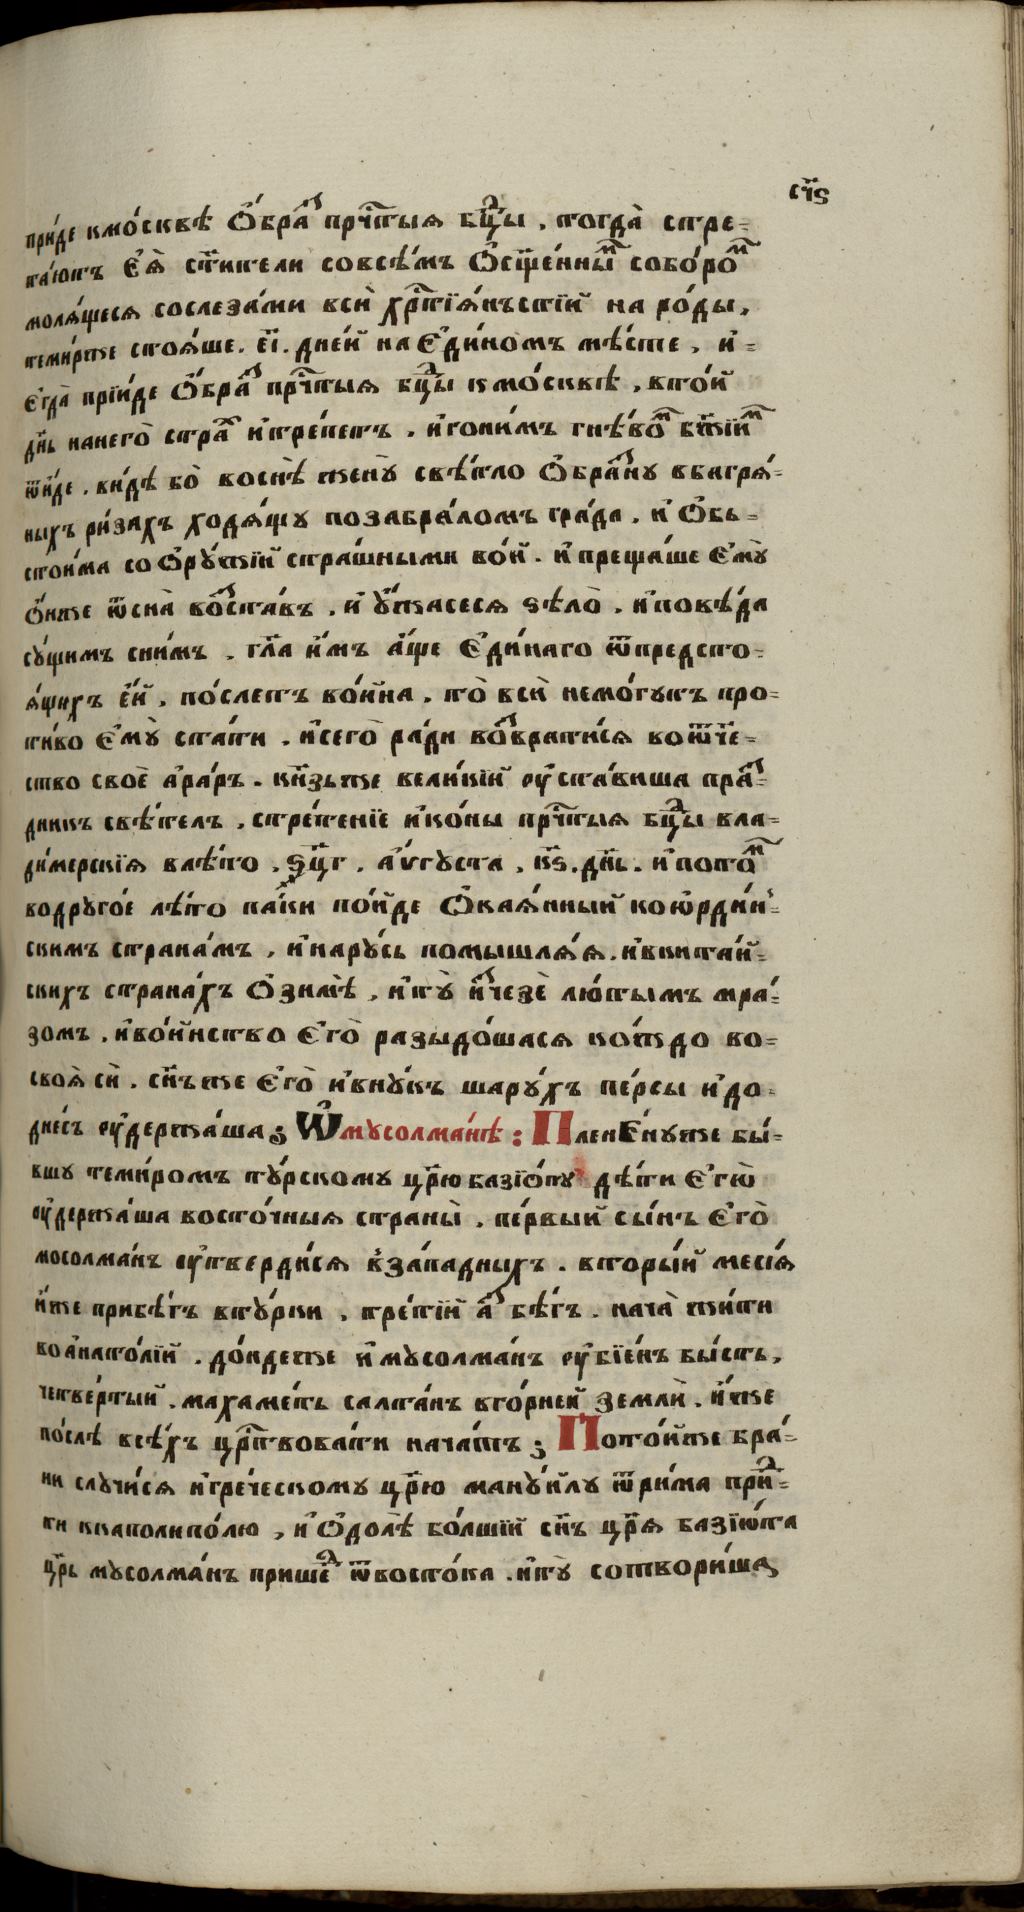 сн҃ѕ
прїи́де кмо́сквѣ Ѻ҆́браⷥ прчⷭ҇тыя бцⷣы , тогда̀ стрѣ=
та́ютъ Є҆ѧ̀ ст҃ители совсѣ́мъ Ѻ҆сщ҃е́ннымⷨ собо́ромⷨ
моля́щеся сослеза́ми всѝ хрⷭ҇тїя́нъстїй на ро́ды,
теми́рже стоя́ше . е҃і . дне́й на Є҆ди́номъ мѣ́сте , и҆=
є҆гда̀ прїи́де Ѻ҆́браⷥ прчⷭ҇тыя бцⷣы кмо́сквѣ , вто́й
дн҃ь нанего̀ страⷯ и҆тре́петъ . и҆гони́мъ гнѣ́воⷨ бж҃їиⷨ
ѿи́де . ви́дѣ бо̀ воснѣ̀ жену̀ свѣ́тло Ѻ҆бра́ну вбагря́=
ныхъ ри́захъ ходя́щу позабра́ломъ гра́да . и҆ Ѻ҆бь=
стои́ма соѺ҆ру́жїй стра́шными во́й . и҆ преща́ше Є҆му̀
Ѻ҆́нже ѿсна̀ воⷥста́въ . и҆ у҆жасеся ѕѣло̀ . и҆повѣ́да
су́щимъ сни́мъ . гл҃а и҆́мъ а҆́ще Є҆ди́наго ѿпредсто=
я́щихъ е҆́й , по́слетъ во́йна . то̀ всѝ немо́гутъ про=
тиво Є҆му̀ ста́ти . и҆сего̀ ра́ди воⷥврати́ся воѿч҃е=
ство своѐ а҆ра́ръ . кн҃зьже вели́кїй ѹ҆ста́виша праⷥ=
дникъ свѣ́телъ , стрѣ́тенїе и҆ко́ны прчⷭ҇тыя бцⷣы вла=
ди́мерскїя влѣ́то , ѕ҃цг . а҆́ѵгуста , к҃ѕ . дн҃ь . и҆пото́ⷨ
водруго́е лѣ́то па́ки по́йде Ѻ҆кая́нный коѡ҆рди́н=
скимъ страна́мъ , и҆нару́сь помышля́я . и҆вкита́й=
скихъ страна́хъ Ѻ҆зимѣ̀ , и҆ту̀ и҆ⷥчезѐ лю́тымъ мра́=
зомъ . и҆во́йнство Є҆го̀ разыдо́шася ко́ждо во=
своя̀ сѝ . сн҃ъже Є҆го̀ и҆вну́къ шару́хъ пе́рсы и҆до=
дне́сь ѹ҆держа́ша ; Ѡ҆ мусолма́нѣ : Плене́нуже бы́=
вшу теми́ромъ ту́рскому цр҃ю базїо́ту дѣ́ти Є҆гѡ̀
ѹ҆держа́ша восто́чныя страны̀ . пе́рвый сы́нъ Є҆го̀
мосолма́нъ ѹ҆тверди́ся в҆за́падныхъ . вторы́й месі́я
и҆́же прибѣ́гъ вту́рки , тре́тїй аⷥ бѣ́гъ . нача̀ жи́ти
воа҆нато́лїй . до́ндеже и҆ мусолма́нъ ѹ҆бїе́нъ бы́сть ,
четве́ртый . махаме́тъ салта́нъ вго́рней землѝ . и҆́же
по́слѣ всѣ́хъ црⷭ҇твовати нача́тъ ; Пото́йже бра́=
ни случи́ся и҆гре́ческому цр҃ю мануи́лу ѿри́ма прїиⷣ=
ти ккаполипо́лю , и҆ Ѻ҆долѣ̀ бо́лшїй сн҃ъ цр҃я базїю́та
цр҃ь мусолма́нъ прише́ⷣ ѿвосто́ка . и҆ту̀ сотвори́ша